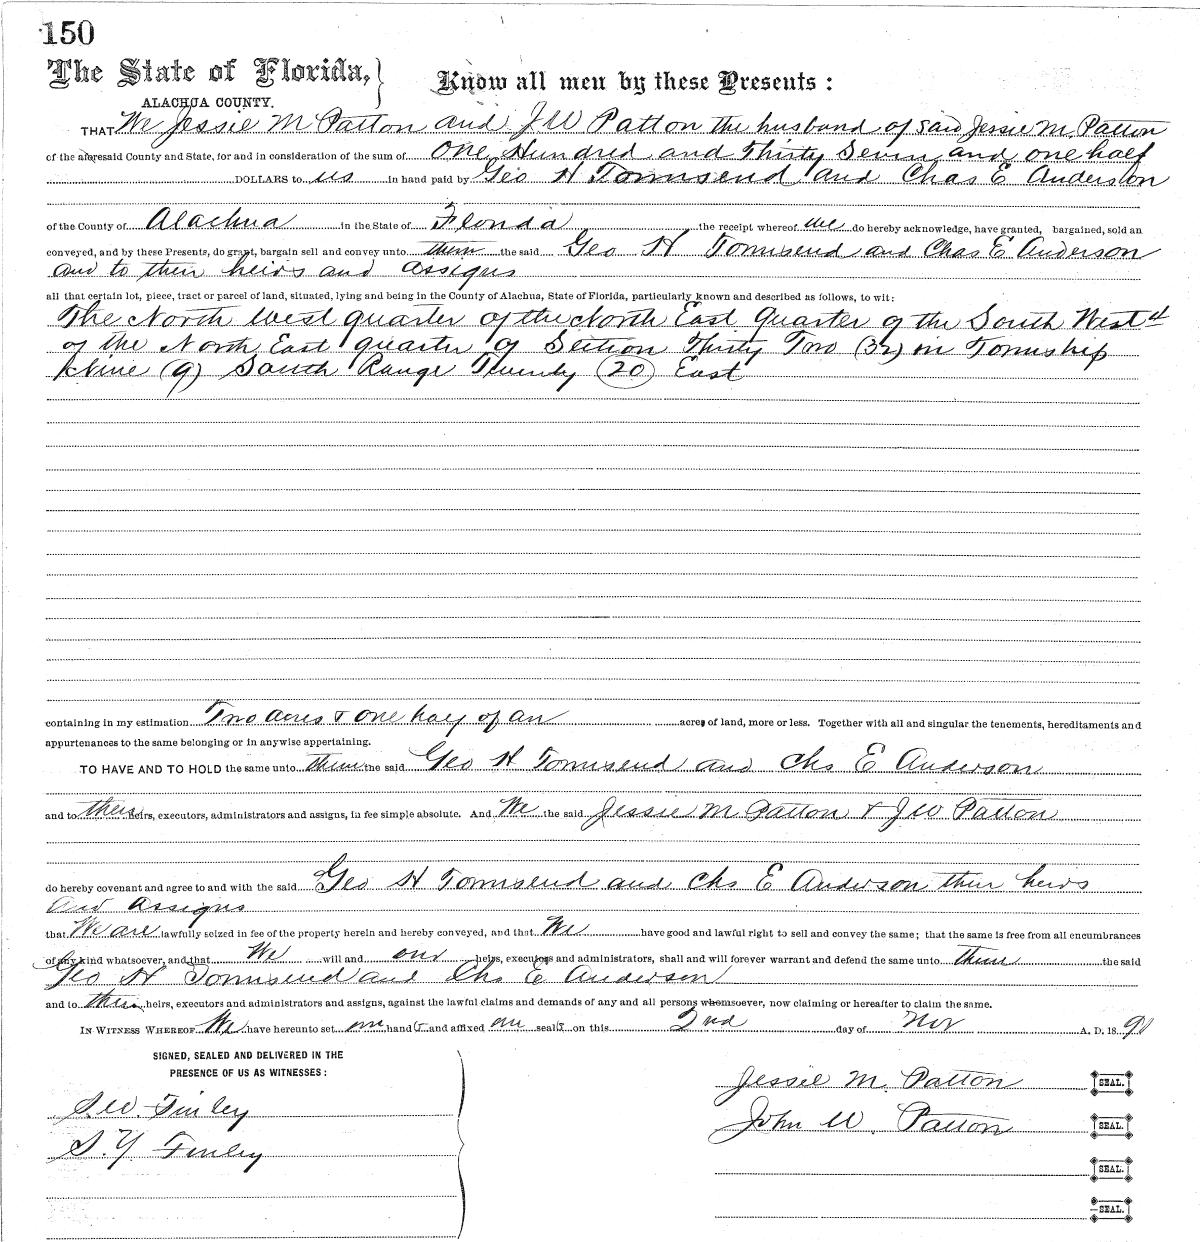 150
The State of Florida, } Know all men by these Presents :
ALACHUA COUNTY.
THAT We Jessie M Patton and J W Patton the husband of said Jessie M. Patton
of the aforesaid County and State, for and in consideration of the sum of One Hundred and Thirty Seven and one half
DOLLARS to us in hand paid by Geo H Townsend and Chas E Anderson
of the County of Alachua in the State of Florida the receipt whereof we do hereby acknowledge, have granted, bargained, sold an
conveyed, and by these Presents, do grant, bargain sell and convey unto them the said Geo H Townsend and Chas E Anderson
and to their heirs and assigns
all that certain lot, piece, tract or parcel of land, situated, lying and being in the County of Alachua, State of Florida, particularly known and described as follows, to wit:
The North West quarter of the North East Quarter of the South West 4
of the North East quarter of Section Thirty Two (32) in Township
Nine (9) South Range Twenty (20) East
containing in my estimation Two acres & one half of an acre, of land, more or less. Together with all and singular the tenements, hereditaments and
appurtenances to the same belonging or in anywise appertaining.
TO HAVE AND TO HOLD the same unto them the said Geo H Townsend and Chs E Anderson
and to their heirs, executors, administrators and assigns, in fee simple absolute. And We the said Jessie M Patton & J W Patton
do hereby covenant and agree to and with the said Geo H Townsend and Chs E Anderson their heirs
and assigns
that We are lawfully seized in fee of the property herein and hereby conveyed, and that We have good and lawful right to sell and convey the same; that the same is free from all encumbrances
of any kind whatsoever, and that We will and our heirs, executors and administrators, shall and will forever warrant and defend the same unto them the said
Geo H Townsend and Chs E Anderson
and to their heirs, executors and administrators and assigns, against the lawful claims and demands of any and all persons whomsoever, now claiming or hereafter to claim the same.
IN WITNESS WHEREOF We have hereunto set our hands and affixed our seals on this 2nd day of Nov A. D. 18 90
SIGNED, SEALED AND DELIVERED IN THE
PRESENCE OF US AS WITNESSES :
Jessie M. Patton SEAL.
S. W. Finley
John W. Patton SEAL.
S. Y. Finley
SEAL.
SEAL.